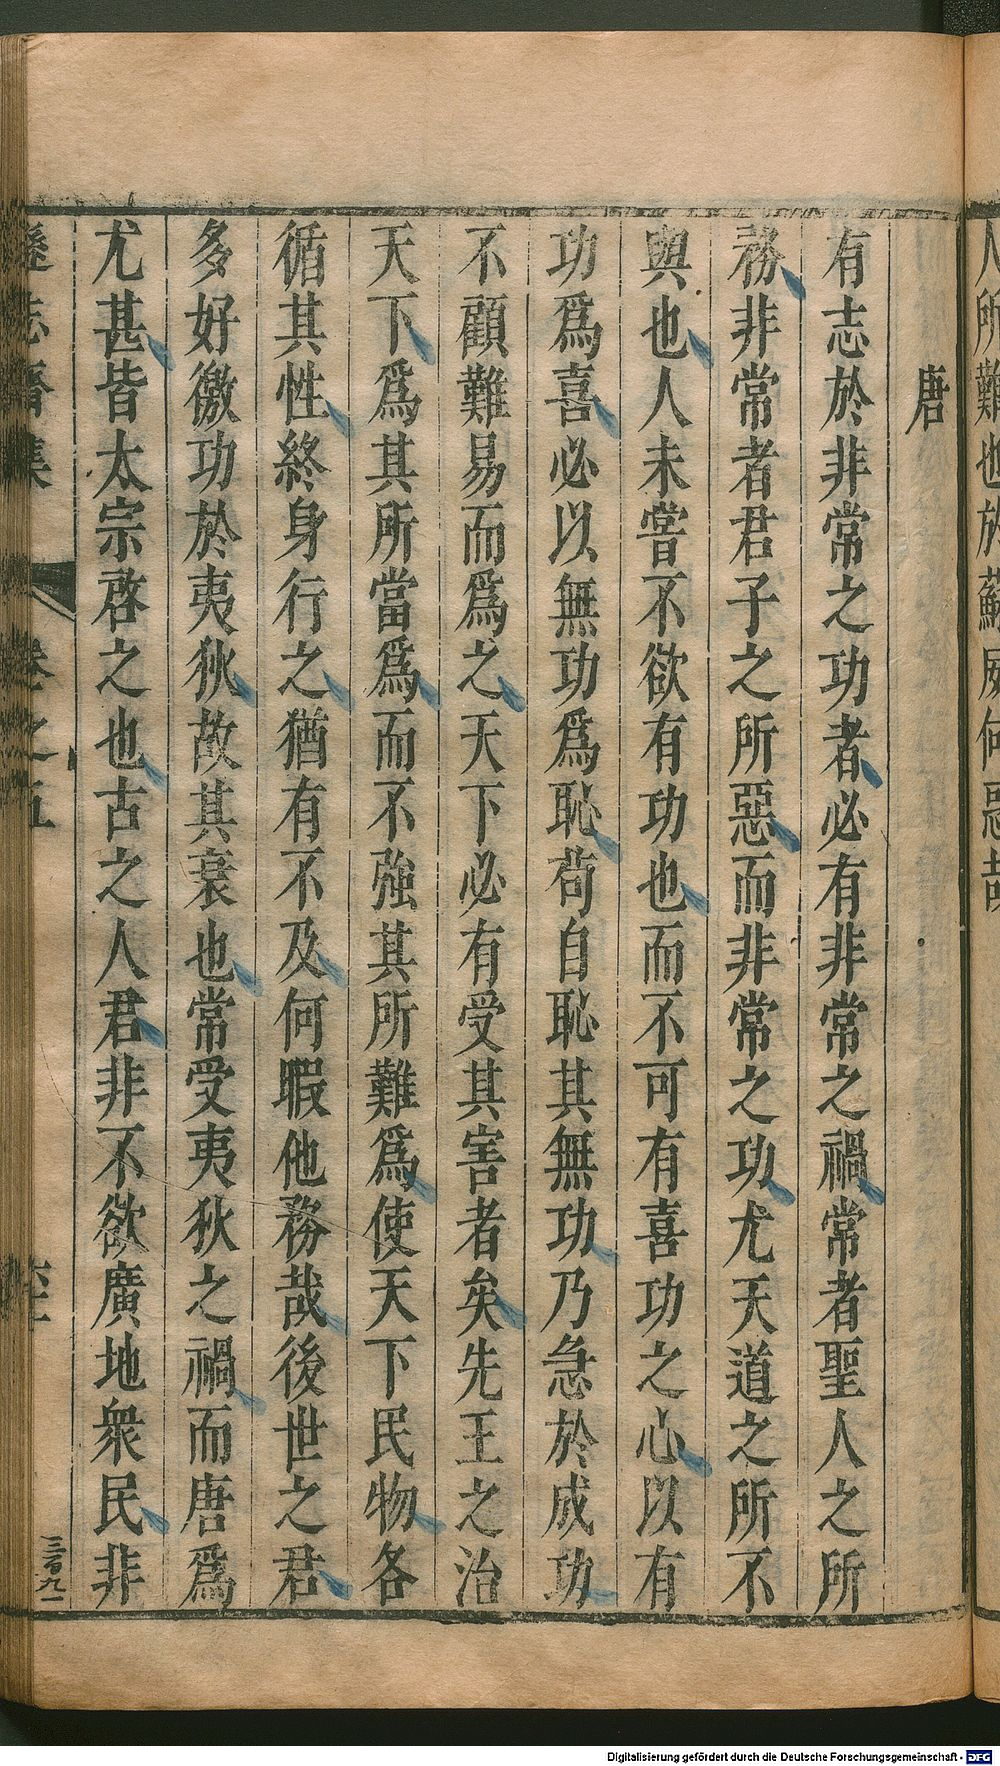 人所難也於蘇威何惡哉
唐
有志於非常之功者必有非常之禍常者聖人之所
務非常者君子之所惡而非常之功尤天道之所不
與也人未嘗不欲有功也而不可有喜功之心以有
功爲喜必以無功爲恥苟自恥其無功乃急於成功
不顧難易而爲之天下必有受其害者矣先王之治
天下爲其所當爲而不強其所難爲使天下民物各
循其性終身行之猶有不及何暇他務哉後世之君
多好徼功於夷狄故其衰也常受夷狄之禍而唐爲
尤甚皆太宗啓之也古之人君非不欲廣地衆民非
遜志齋集 卷之五
三百九一
Digitalisierung gefördert durch die Deutsche Forschungsgemeinschaft - DFG